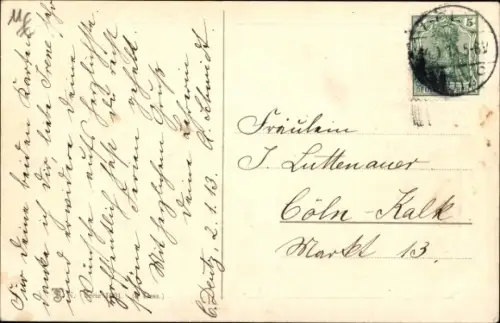 Für Deine beiden Karten
danke ich Dir liebe Irene sehr
und erwidere Deine
Wünsche aufs herzlichste
hoffentlich hast Du recht
schöne Ferien gehabt.
Mit herzlichem Gruß
Deine
C. Deutz, 2.1.13.
Fräulein
I. Luttenauer
Cöln-Kalk
Markt 13.
5